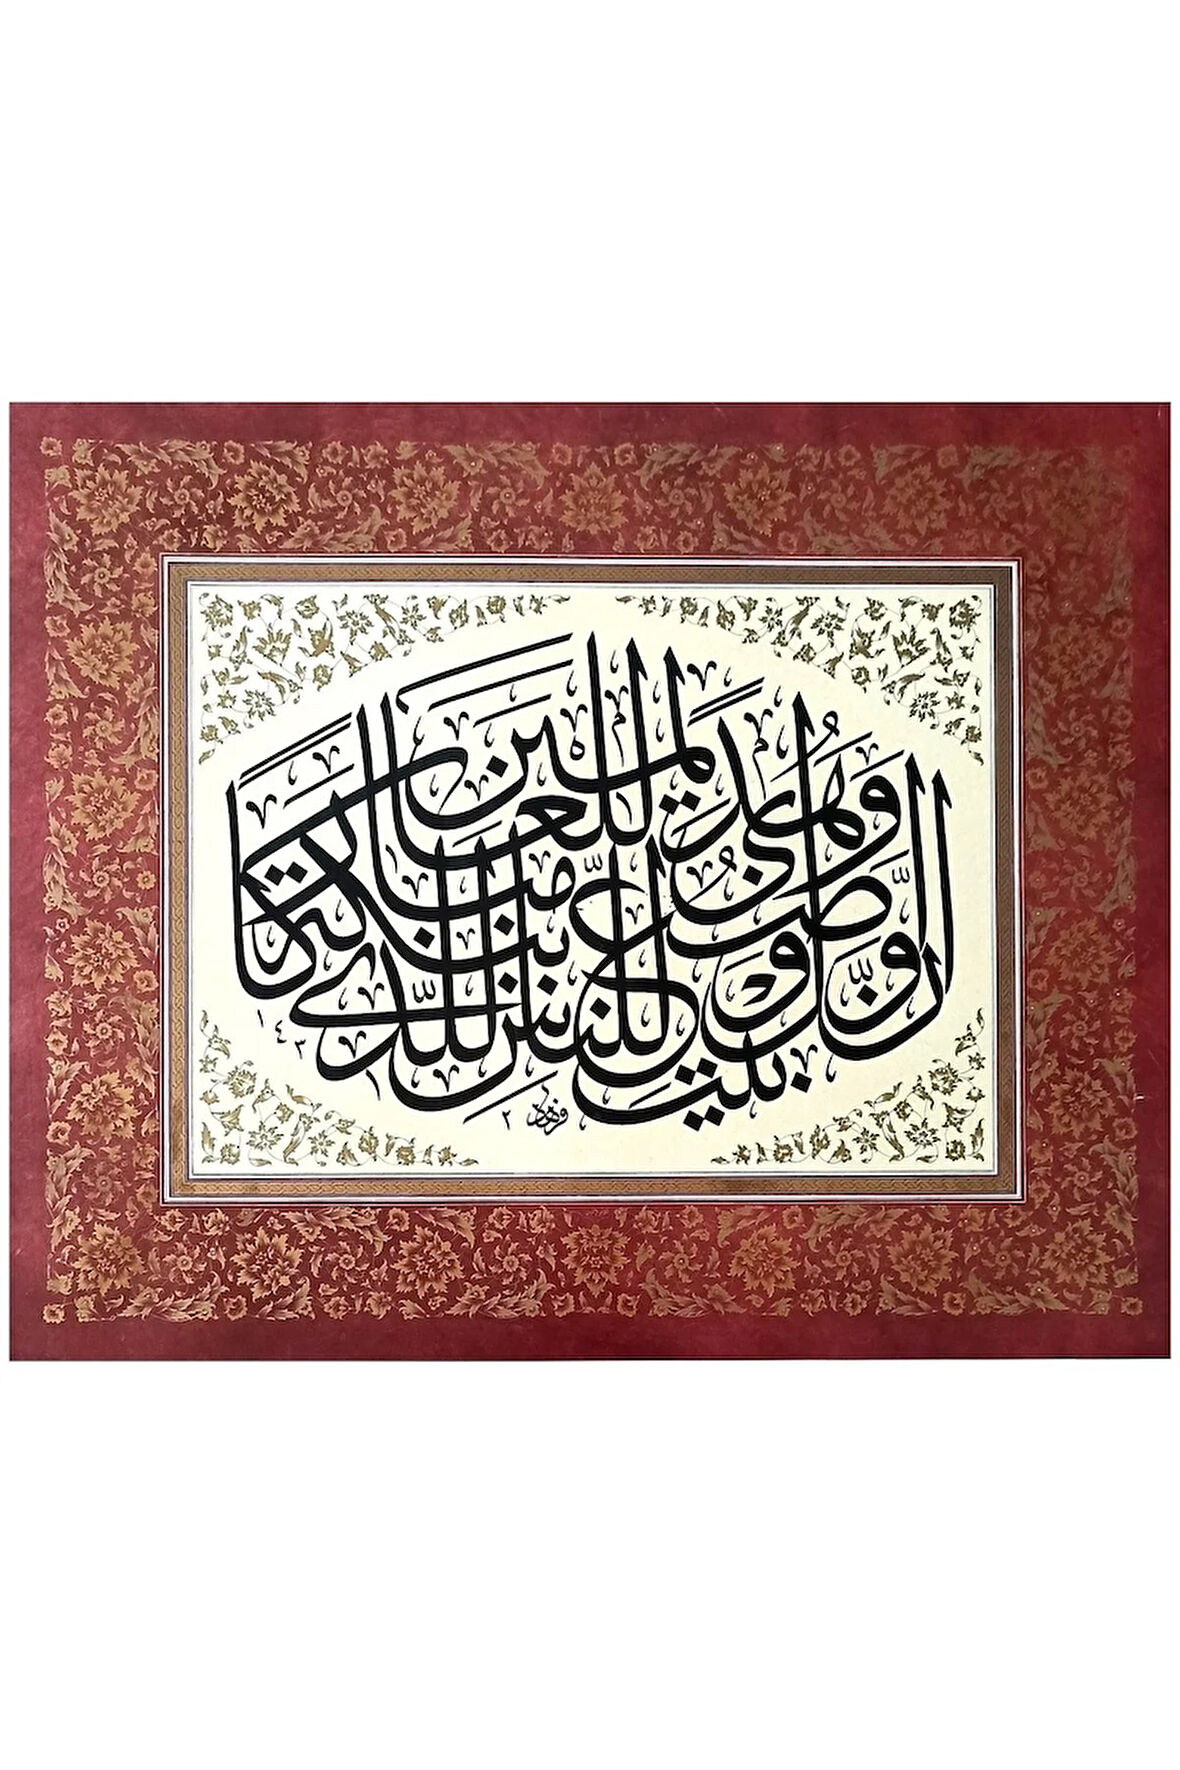 إن أول بيت وضع للناس للذي ببكة مباركا وهدى للعالمين
١٤٢